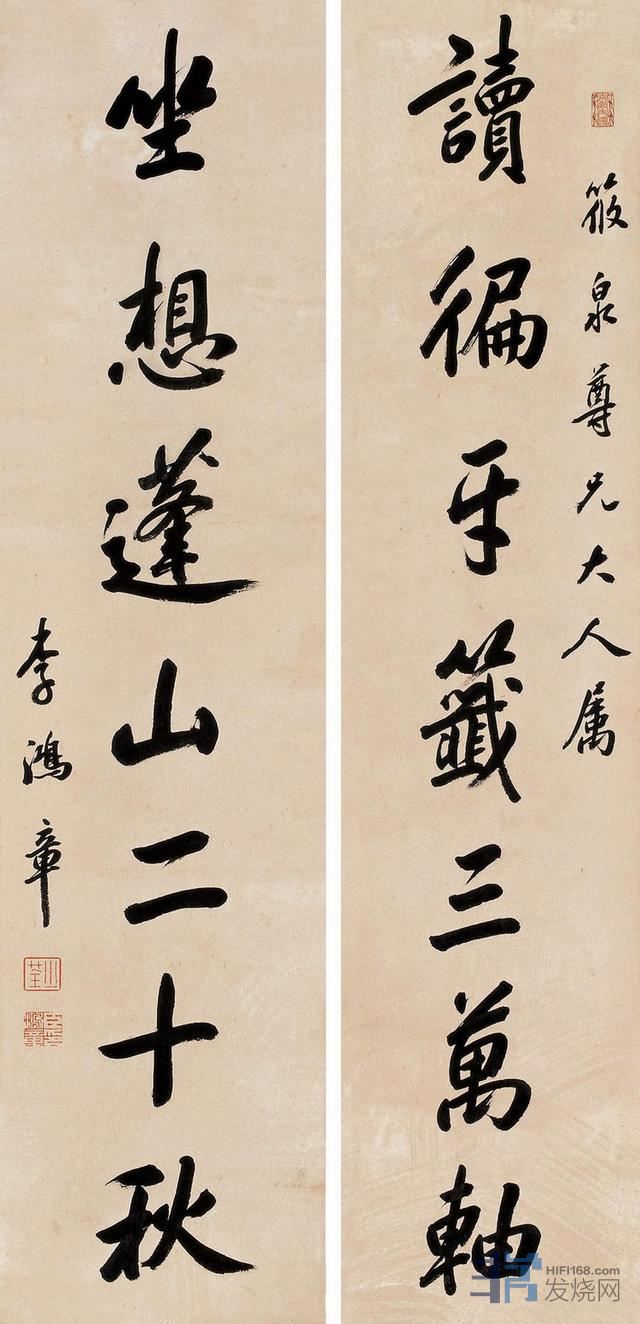 筱泉尊兄大人属
讀徧牙籤三萬軸
坐想蓬山二十秋
李鴻章
HIFI168.com
发烧网